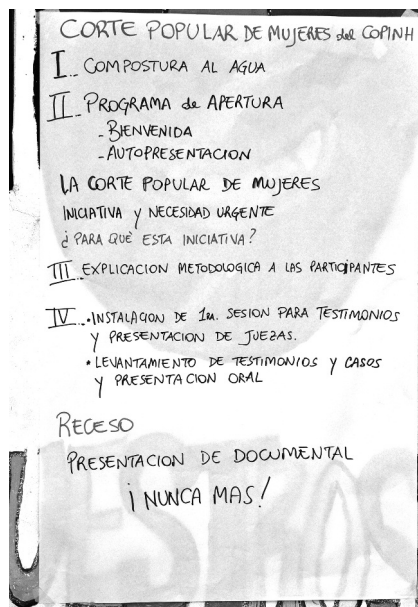 CORTE POPULAR DE MUJERES del COPINH
I... COMPOSTURA AL AGUA
II.. PROGRAMA de APERTURA
- BIENVENIDA
- AUTOPRESENTACION
LA CORTE POPULAR DE MUJERES
INICIATIVA y NECESIDAD URGENTE
¿PARA QUÉ ESTA INICIATIVA?
III.. EXPLICACION METODOLOGICA A LAS PARTICIPANTES
IV... • INSTALACION DE 1RA. SESION PARA TESTIMONIOS
y PRESENTACION DE JUEZAS.
• LEVANTAMIENTO DE TESTIMONIOS y CASOS
y PRESENTACION ORAL
RECESO
PRESENTACION DE DOCUMENTAL
¡NUNCA MAS!